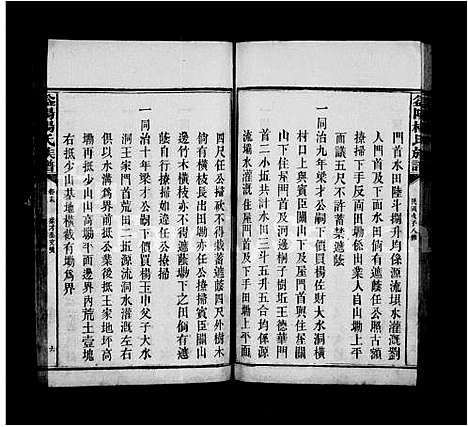 門首水田陸斗捌升均係源流垻水灌溉劉
人門首及下水田倘有遮蔭任公照古額
撩掃下手反田塝係出業人自山塝上平
面議五尺不許蓄禁遮蔭
一同治九年梁才公嗣下價買楊佐財大水洞橫
村口上與賓臣關山下及屋門首與村對面
山下住屋門首及河邊桐子樹坵王德華門
首二小坵共計水田三斗五升五合均係源
流垻水灌溉住屋門首及下手田塝上平面
四尺任公撩掃不得栽蓄遮蔭四尺外樹木
倘有橫枝長出田塝亦任公撩掃賓臣關山
蓄竹木橫枝亦不得遮蔭塝下之田倘有遮
蔭自行撩掃如違任公撩掃
一同治十年梁才公嗣下價買楊玉申父子大水
洞王家門首荒田二坵源流洞水灌溉左右
後俱塝脚為界前抵公業後抵王家地坪高
塝下抵少山高塝平面邊界內荒土壹塊
右抵少山墓地橫截有塝為界
楊氏族譜
卷五
六